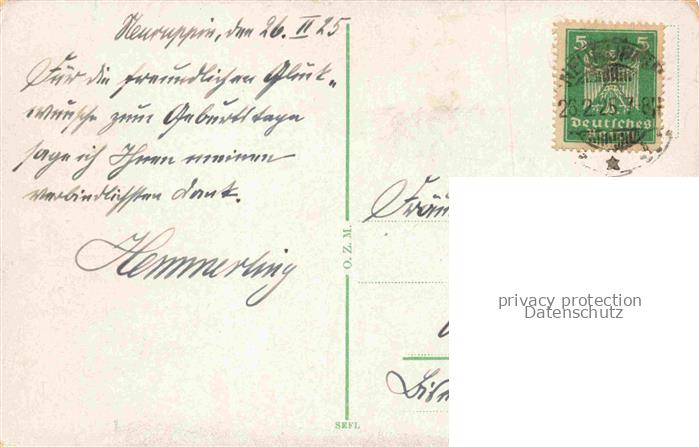 Neuruppin, den 26. II 25
Für die freundlichen Glück-
wünsche zum Geburtstage
sage ich Ihnen meinen
verbindlichsten Dank.
Hemmerling
O. Z. M.
SEFL
5 5
26.2.25. 7-8
Deutsches
Reich
Fräu
privacy protection
Datenschutz